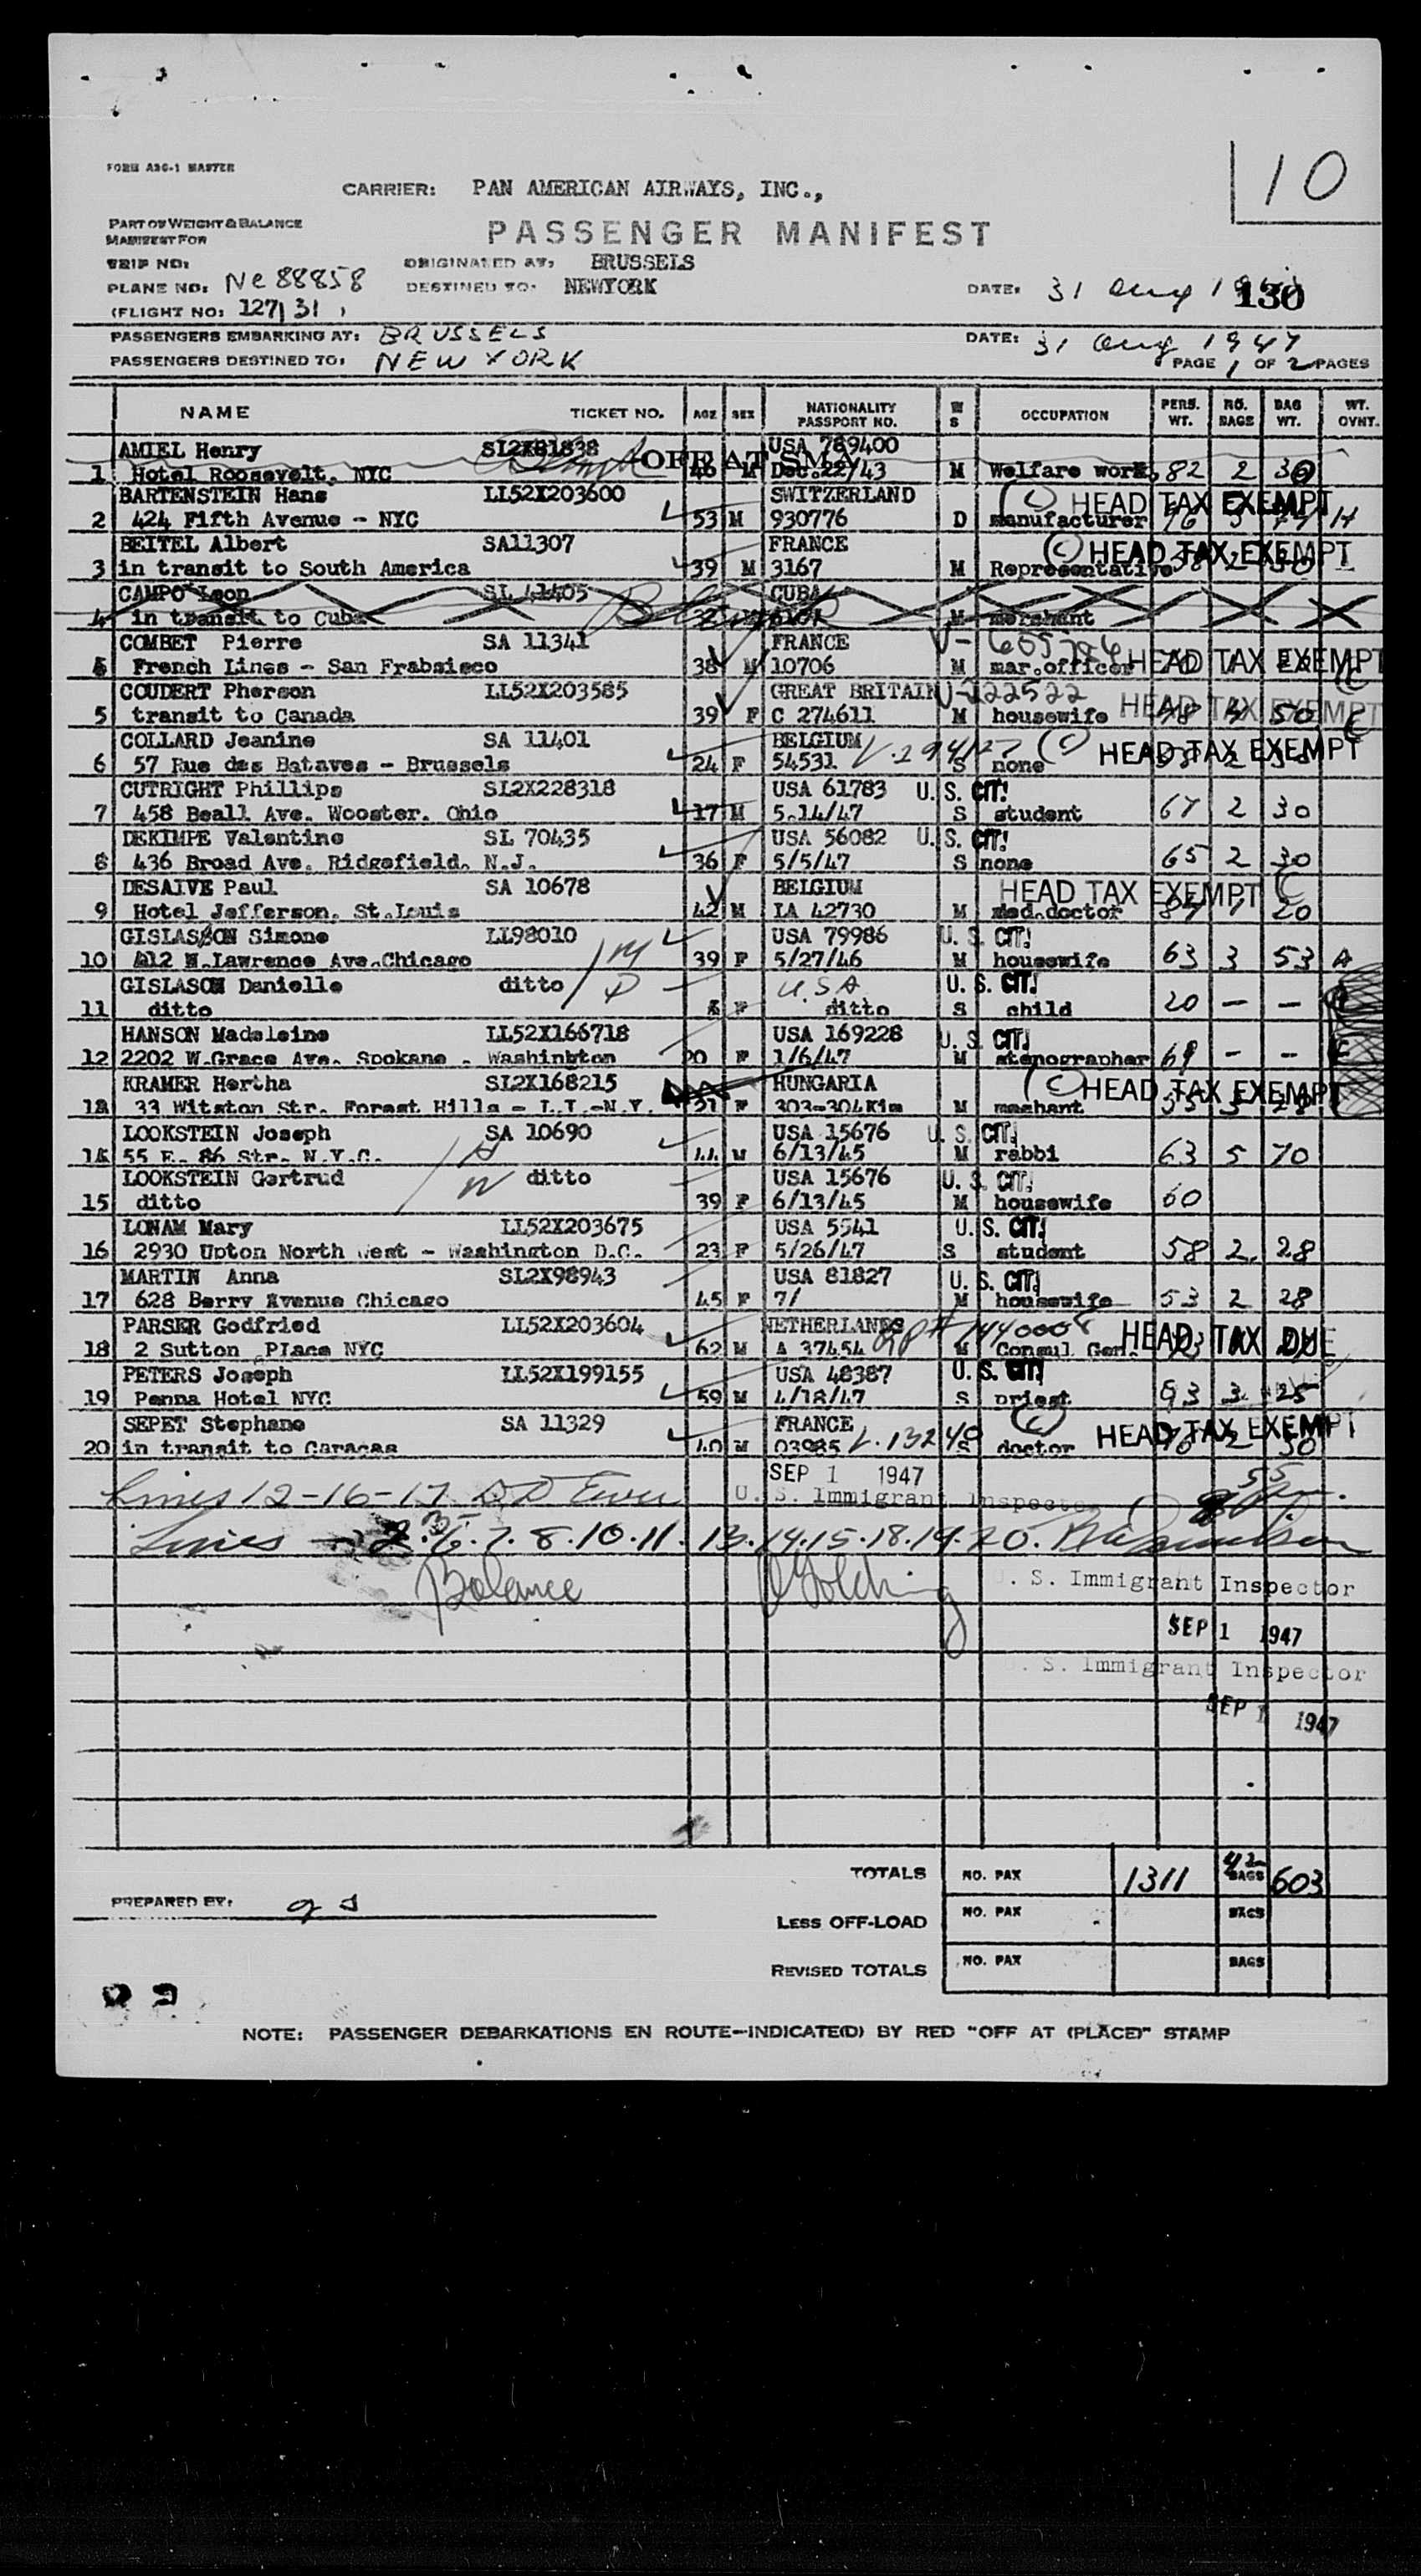 10
FORM A36-1 MASTER
CARRIER: PAN AMERICAN AIRWAYS, INC.,
PART OF WEIGHT & BALANCE
MANIFEST FOR
PASSENGER MANIFEST
TRIP NO:
ORIGINATED AT: BRUSSELS
PLANE NO: Nc 88858
DESTINED TO: NEWYORK
DATE: 31 Aug 130
(FLIGHT NO: 127/31 )
PASSENGERS EMBARKING AT: BRUSSELS
DATE: 31 Aug 1947
PASSENGERS DESTINED TO: NEW YORK
PAGE 1 OF 2 PAGES
NAME TICKET NO. AGE SEX NATIONALITY PASSPORT NO. M S OCCUPATION PERS. WT. NO. BAGS BAG WT. WT. OVHT.
AMIEL Henry SL2X81838 USA 789400
OFF AT SMA
1 Hotel Roosevelt, NYC M Dec.22/43 M Welfare work. 82 2 30
BARTENSTEIN Hans LL52X203600 SWITZERLAND (C) HEAD TAX EXEMPT
2 424 Fifth Avenue - NYC 53 M 930776 D manufacturer H
BEITEL Albert SA11307 FRANCE (C) HEAD TAX EXEMPT
3 in transit to South America 39 M 3167 M Representative
CAMPO Leon SL 41405 CUBA
4 in transit to Cuba M merchant
COMBET Pierre SA 11341 FRANCE
5 French Lines - San Frabsisco 38 M 10706 M mar.officer HEAD TAX EXEMPT
COUDERT Pherson LL52X203585 GREAT BRITAIN V-122522
5 transit to Canada 39 F C 274611 M housewife HEAD TAX EXEMPT 50
COLLARD Jeanine SA 11401 BELGIUM (C) HEAD TAX EXEMPT
6 57 Rue des Bataves - Brussels 24 F 54531 S none
CUTRIGHT Phillips SL2X228318 USA 61783 U. S. CIT!
7 458 Beall Ave. Wooster. Ohio 17 M 5.14/47 S student 67 2 30
DEKIMPE Valentine SL 70435 USA 56082 U. S. CIT!
8 436 Broad Ave. Ridgefield. N.J. 36 F 5/5/47 S none 65 2 30
DESAIVE Paul SA 10678 BELGIUM HEAD TAX EXEMPT C
9 Hotel Jefferson. St.Louis 42 M LA 42730 M med.doctor 87 1 20
GISLASSON Simone LL98010 USA 79986 U. S. CIT!
10 412 N.Lawrence Ave.Chicago M 39 F 5/27/46 M housewife 63 3 53 A
GISLASON Danielle ditto D USA U. S. CIT!
11 ditto F ditto S child 20 - -
HANSON Madeleine LL52X166718 USA 169228 U. S. CIT!
12 2202 W.Grace Ave. Spokane . Washinbton 20 F 1/6/47 M stenographer 69 - -
KRAMER Hertha SL2X168215 HUNGARIA (C) HEAD TAX EXEMPT
13 33 Witston Str. Forest Hills - L.I.-N.Y. 21 F 303-304Kim M meshant
LOOKSTEIN Joseph SA 10690 USA 15676 U. S. CIT!
14 55 E. 86 Str. N.Y.C. H 44 M 6/13/45 M rabbi 63 5 70
LOOKSTEIN Gertrud W ditto USA 15676 U. S. CIT!
15 ditto 39 F 6/13/45 M housewife 60
LONAM Mary LL52X203675 USA 5541 U. S. CIT!
16 2930 Upton North West - Washington D.C. 23 F 5/26/47 S student 58 2. 28
MARTIN Anna SL2X98943 USA 81827 U. S. CIT!
17 628 Berry Avenue Chicago 45 F 7/ M housewife 53 2 28
PARSER Godfried LL52X203604 NETHERLANDS HEAD TAX DUE
18 2 Sutton PLace NYC 62 M A 37454 M Consul Gen.
PETERS Joseph LL52X199155 USA 48387 U. S. CIT!
19 Penna Hotel NYC 59 M 4/18/47 S priest 93 3 25
SEPET Stephane SA 11329 FRANCE (C) HEAD TAX EXEMPT
20 in transit to Caracas 40 M 03985 V.13240 S doctor 2 30
SEP 1 1947
Lines 12-16-17
U. S. Immigrant Inspector
Lines 6.7.8.10.11.13.14.15.18.19.20.
Balance Golding
U. S. Immigrant Inspector
SEP 1 1947
U. S. Immigrant Inspector
SEP 1 1947
TOTALS NO. PAX 1311 42 BAGS 603
PREPARED BY:
LESS OFF-LOAD NO. PAX BAGS
REVISED TOTALS NO. PAX BAGS
NOTE: PASSENGER DEBARKATIONS EN ROUTE-INDICATE(D) BY RED "OFF AT (PLACE)" STAMP